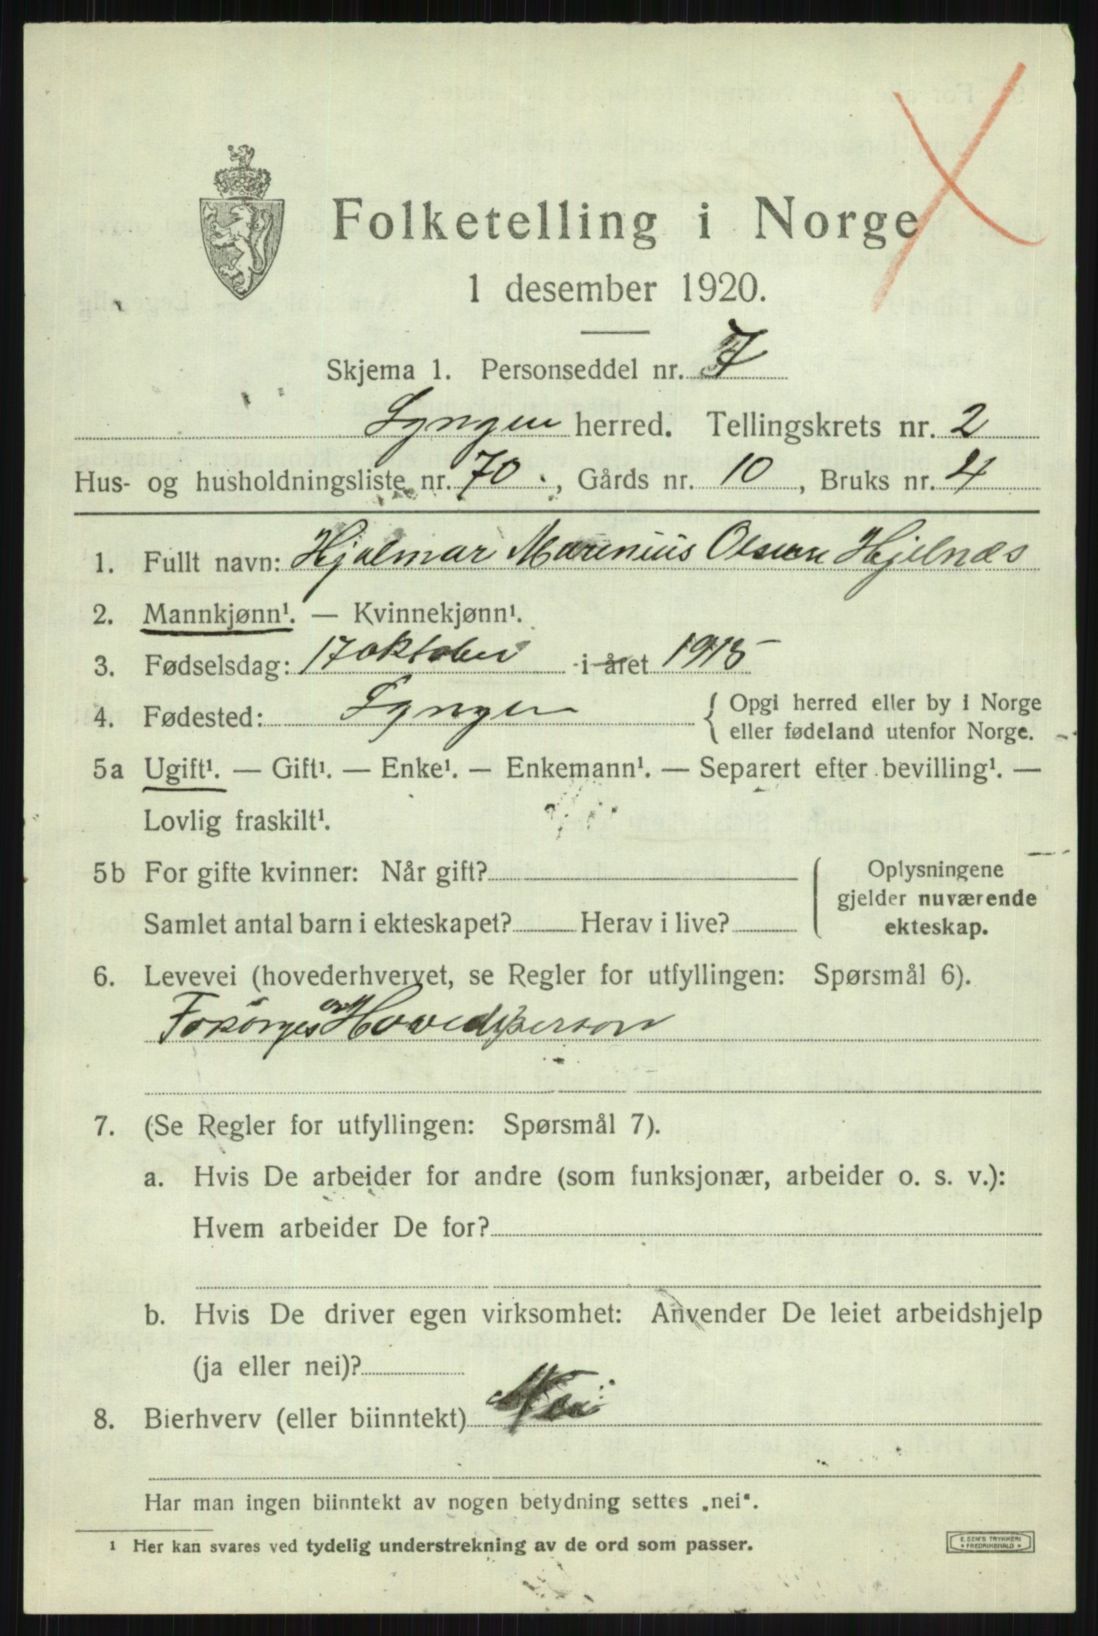 Folketelling i Norge
1 desember 1920.
Skjema 1. Personseddel nr. 7
Lyngen herred. Tellingskrets nr. 2
Hus- og husholdningsliste nr. 70., Gårds nr. 10, Bruks nr. 4
1. Fullt navn: Hjalmar Marenius Olsen Hjelnæs
2. Mannkjønn¹. — Kvinnekjønn¹.
3. Fødselsdag: 17 oktober i året 1915
4. Fødested: Lyngen { Opgi herred eller by i Norge
eller fødeland utenfor Norge.
5a Ugift¹. — Gift¹. — Enke¹. — Enkemann¹. — Separert efter bevilling¹. —
Lovlig fraskilt¹.
5b For gifte kvinner: Når gift?
Samlet antal barn i ekteskapet? Herav i live?
Oplysningene
gjelder nuværende
ekteskap.
6. Levevei (hovederhvervet, se Regler for utfyllingen: Spørsmål 6).
Forsørges av Hovedperson
7. (Se Regler for utfyllingen: Spørsmål 7).
a. Hvis De arbeider for andre (som funksjonær, arbeider o. s. v.):
Hvem arbeider De for?
b. Hvis De driver egen virksomhet: Anvender De leiet arbeidshjelp
(ja eller nei)?
8. Bierhverv (eller biinntekt) Nei
Har man ingen biinntekt av nogen betydning settes „nei“.
¹ Her kan svares ved tydelig understrekning av de ord som passer.
E. SEM'S TRYKKERI
FREDRIKSHALD